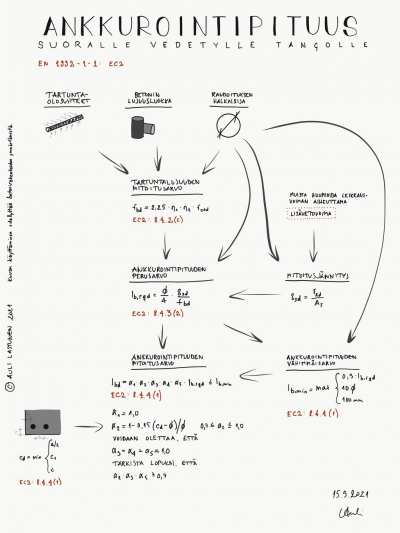 ANKKUROINTIPITUUS
SUORALLE VEDETYLLE TANGOLLE
EN 1992-1-1: EC2
TARTUNTA-
OLOSUHTEET
BETONIN
LUJUUSLUOKKA
RAUDOITUKSEN
HALKAISIJA
TARTUNTALUJUUDEN
MITOITUSARVO
fbd = 2.25 · η1 · η2 · fctd
EC2: 8.4.2(2)
MUISTA HUOMIOIDA LEIKKAUS-
VOIMAN AIHEUTTAMA
LISÄVETOVOIMA
ANKKUROINTIPITUUDEN
PERUSARVO
lb,rqd = ϕ/4 · σsd/fbd
EC2: 8.4.3(2)
MITOITUSJÄNNITYS
σsd = Fsd/As
ANKKUROINTIPITUUDEN
MITOITUSARVO
lbd = α1 · α2 · α3 · α4 · α5 · lb,rqd ≥ lb,min
EC2: 8.4.4(1)
ANKKUROINTIPITUUDEN
VÄHIMMÄISARVO
lb,min = max { 0,3 · lb,rqd
10ϕ
100 mm
EC2: 8.4.4(1)
cd = min { a/2
c1
c
EC2: 8.4.4(1)
α1 = 1,0
α2 = 1-0,15(cd-ϕ)/ϕ 0,7 ≤ α2 ≤ 1,0
VOIDAAN OLETTAA, ETTÄ
α3 = α4 = α5 = 1,0
TARKISTA LOPUKSI, ETTÄ
α2 · α3 · α5 ≥ 0,7
15.3.2021
© AULI LASTUNEN 2021